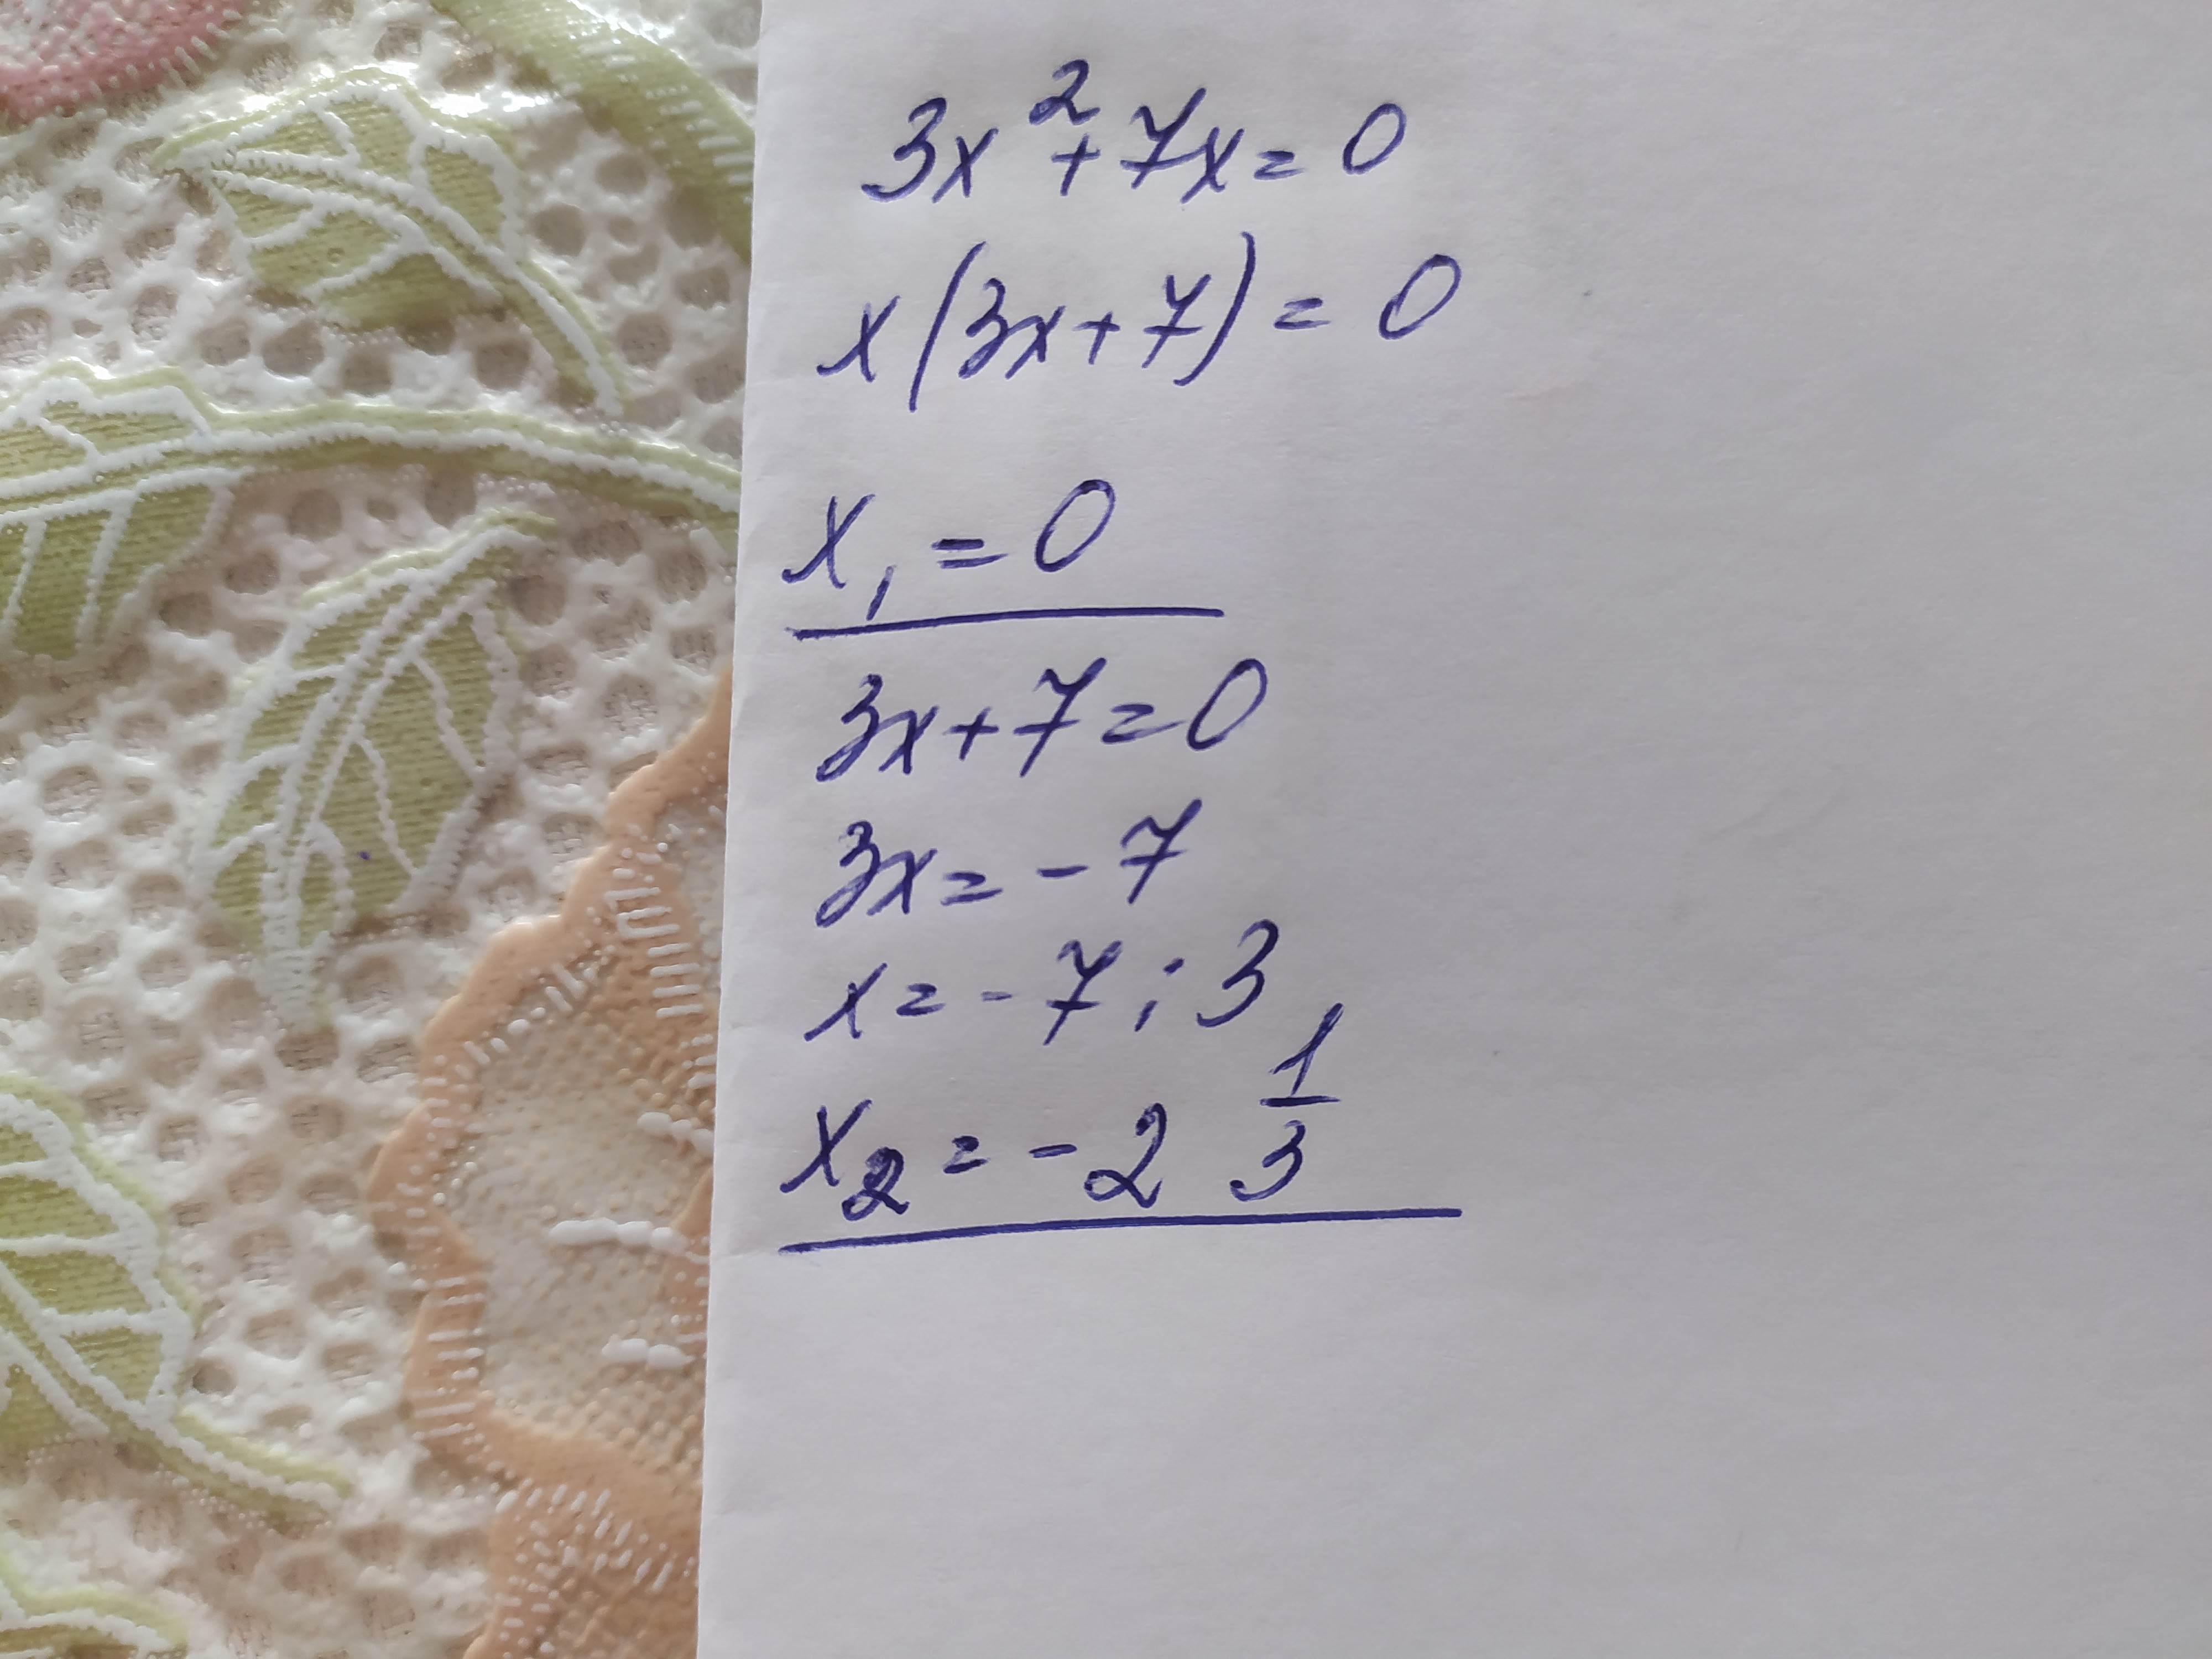 3x²+7x=0
x(3x+7)=0
x₁=0
3x+7=0
3x=-7
x=-7:3
x₂=-2 1/3